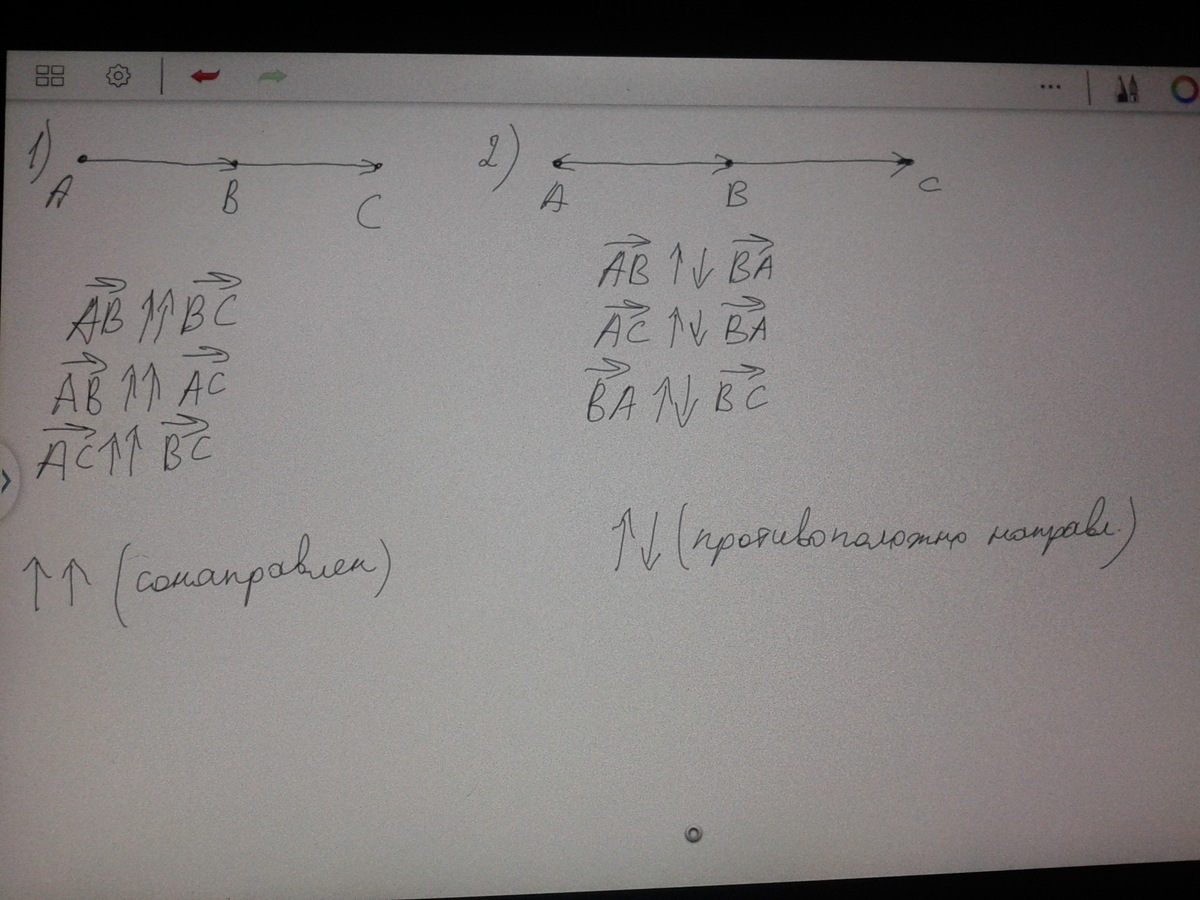 1)
A B C
AB ↑↑ BC
AB ↑↑ AC
AC ↑↑ BC
↑↑ (сонаправлен)
2)
A B C
AB ↑↓ BA
AC ↑↓ BA
BA ↑↓ BC
↑↓ (противоположно направл.)